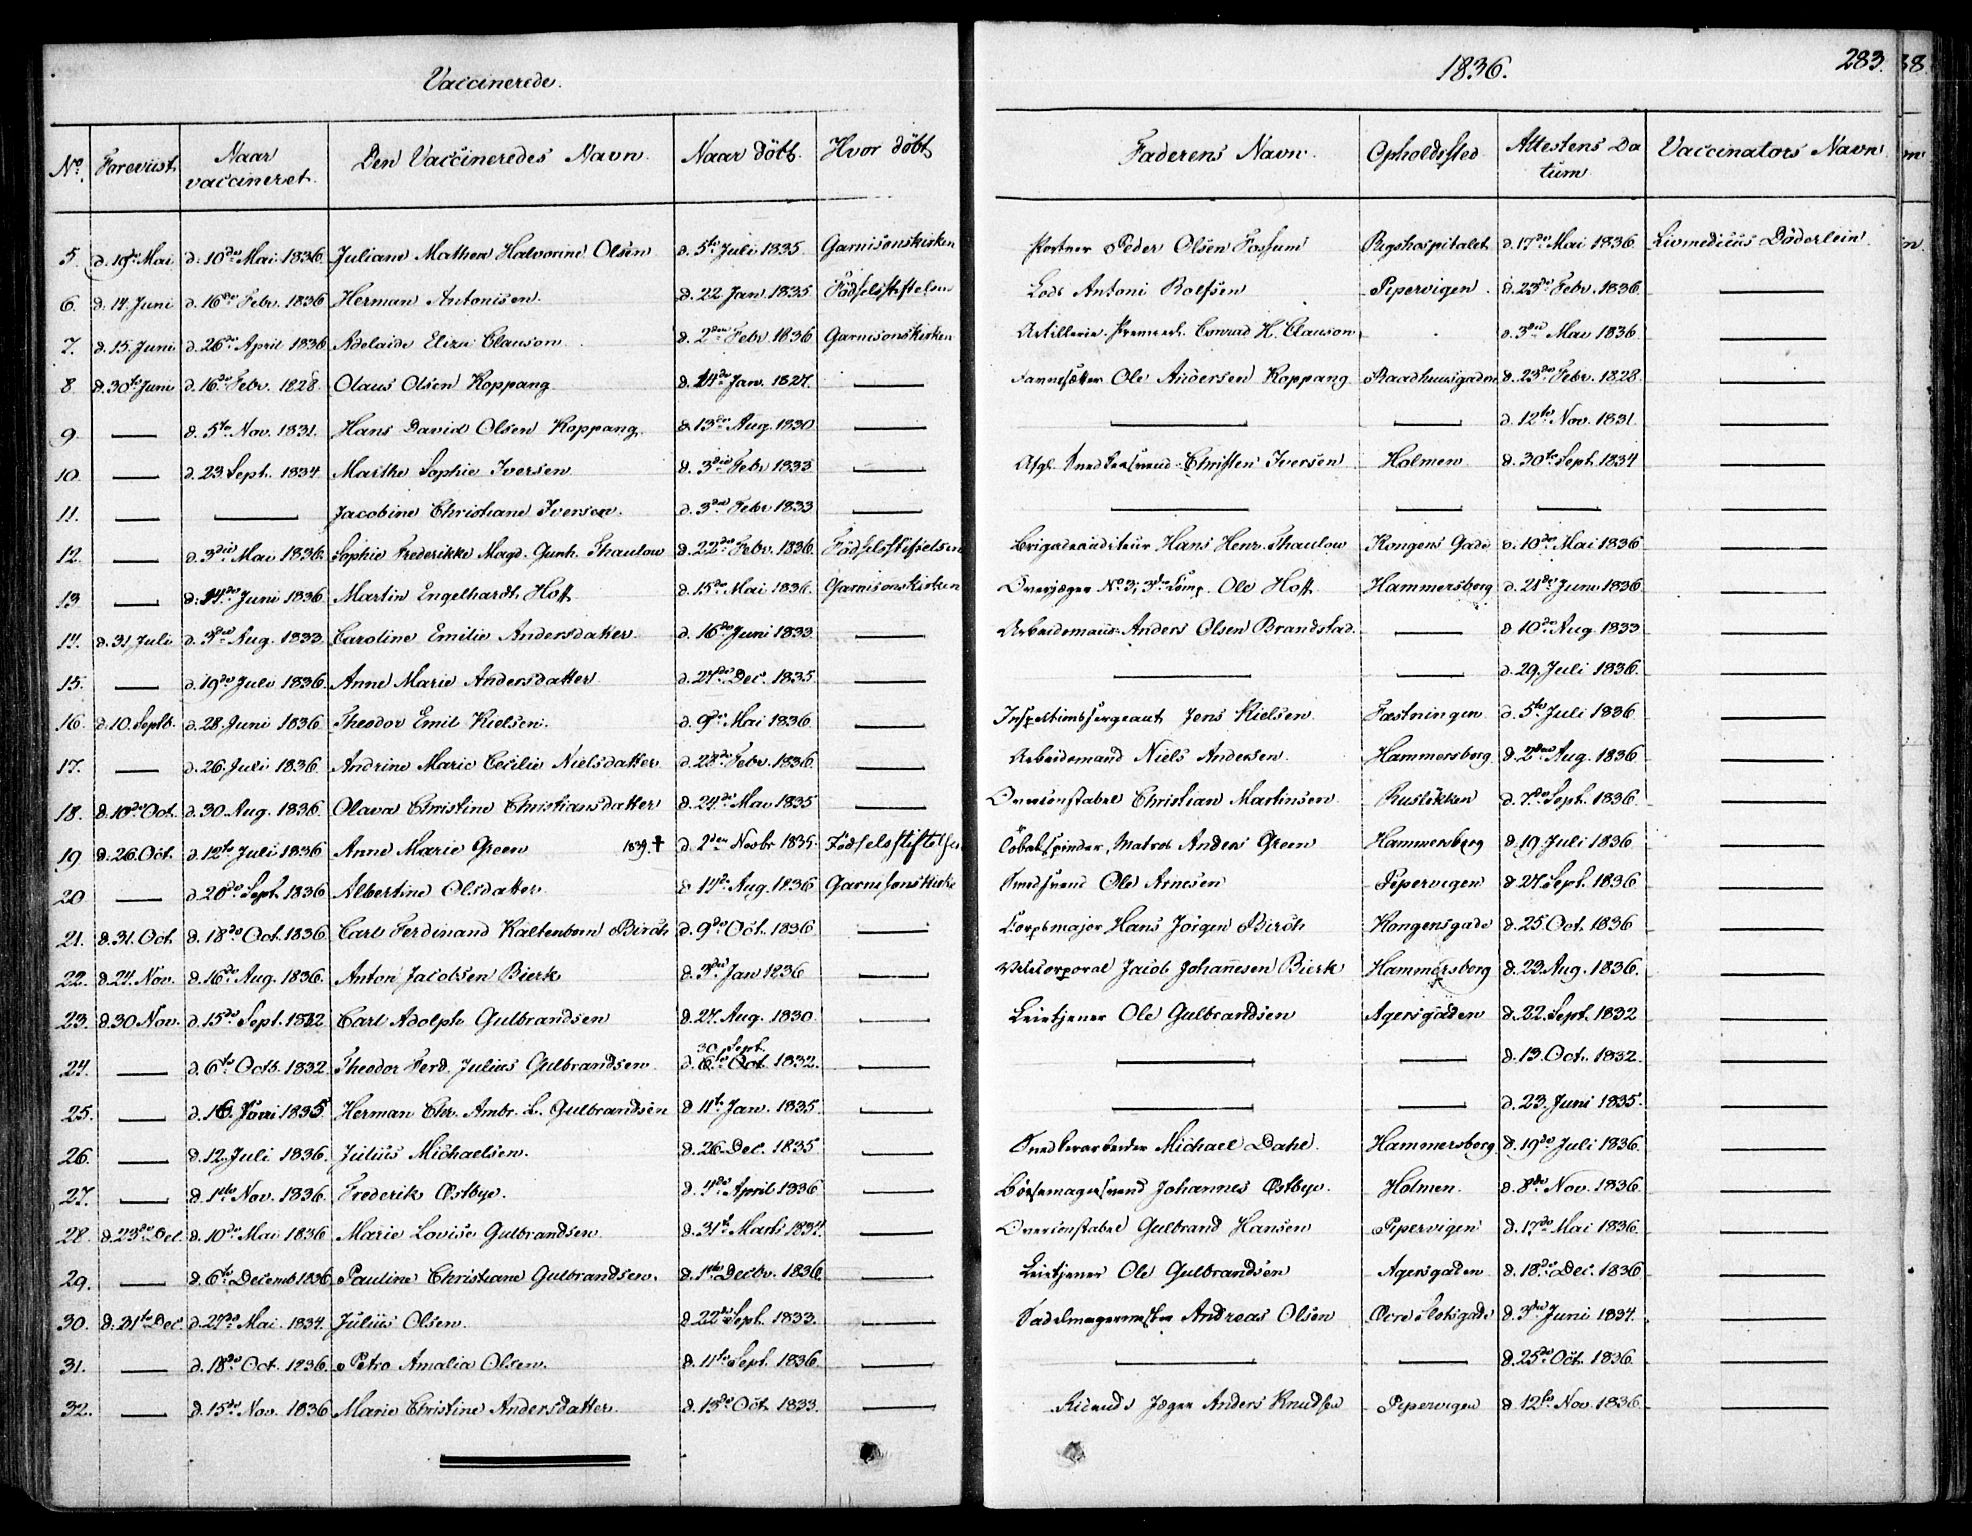 Vaccinerede.
1836.
283.
No. | Foreviist | Naar vaccineret. | Den Vaccineredes Navn. | Naar döbt. | Hvor döbt | Faderens Navn. | Opholdssted | Attestens Datum | Vaccinators Navn
5. | d. 19de Mai | d. 10de Mai 1836 | Juliane Mathea Halvorine Olsen | d. 5te Juli 1835. | Garnisonskirken | Portner Peder Olsen Fossum | Rigshospitalet | d. 17de Mai 1836. | Livmedicus Döderlein.
6. | d. 14. Juni | d. 16de Febr. 1836 | Herman Antonisen. | d. 22 Jan. 1835 | Födselsstiftelsen | Lods Antoni Rolfsen | Pipervigen. | d. 23de Febr. 1836. | —
7. | d. 15. Juni | d. 26de April 1836 | Adelaide Eliza Clauson | d. 2den Febr. 1836 | Garnisonskirken | Artillerie Premierl. Conrad H. Clauson | | d. 3die Mai 1836. | —
8. | d. 30te Juni | d. 16de Febr. 1828. | Olaus Olsen Koppang | d. 14de Jan. 1827. | — | Ole Andersen Koppang | Raadhuusgaden | d. 23de Febr. 1828. | —
9. | — | d. 5te Nov. 1831. | Hans David Olsen Koppang. | d. 13de Aug. 1830 | — | — | — | d. 12te Nov. 1831. | —
10. | — | d. 23. Sept. 1834 | Marthe Sophie Iversen | d. 3die Febr. 1833 | — | Afg. Snedkersvend Christen Iversen | Holmen | d. 30te Sept. 1834 | —
11. | — | — | Jacobine Christiane Iversen. | d. 3die Febr 1833 | — | — | — | — | —
12. | — | d. 3die Mai 1836. | Sophie Frederikke Magd. Gunh. Thaulow | d. 22de Febr. 1836. | Födselsstiftelsen | Brigadeauditeur Hans Henr. Thaulow | Kongens Gade | d. 10de Mai 1836 | —
13. | — | d. 14de Juni 1836 | Martin Engelhardt Hoff | d. 15de Mai 1836. | Garnisonskirken | Overjæger No 3, 3de Comp. Ole Hoff | Hammersborg | d. 21de Juni 1836 | —
14. | d. 31. Juli | d. 3die Aug. 1833. | Caroline Emilie Andersdatter. | d. 16de Juni 1833 | — | Arbeidsmand Anders Olsen Brandstad. | — | d. 10de Aug. 1833 | —
15. | — | d. 19de Juli 1836. | Anne Marie Andersdatter | d. 27de Dec. 1835 | — | — | — | d. 29. Juli 1836. | —
16. | d. 10. Septb. | d. 28. Juni 1836 | Theodor Emil Kielsen. | d. 9de Mai 1836. | — | Inspektionssergeant Jens Kielsen. | Fæstningen | d. 5te Juli 1836 | —
17. | — | d. 26. Juli 1836. | Andrine Marie Cecilie Nielsdatter | d. 28de Febr. 1836 | — | Arbeidsmand Niels Andersen. | Hammersborg | d. 2den Aug. 1836. | —
18. | d. 10de Oct. | d. 30 Aug. 1836. | Olava Christine Christiansdatter | d. 24de Mai 1835 | — | Overconstabel Christian Martinsen | Ruslökken | d. 7de Sept. 1836. | —
19. | d. 26. Oct. | d. 12te Juli 1836 | Anne Marie Green 1839. † | d. 2den Novbr 1835. | Födselsstiftelsen | Tobakspinder, Matros Anders Green | Hammersborg | d. 19. Juli 1836 | —
20. | — | d. 20de Sept. 1836 | Albertine Olsdatter. | d. 14de Aug. 1836 | Garnisonskirke | Smedsvend Ole Arnesen | Pipervigen | d. 27. Sept. 1836 | —
21. | d. 31. Oct. | d. 18de Oct. 1836. | Carl Ferdinand Kaltenborn Birch | d. 9de Oct. 1836 | — | Corpsmajor Hans Jörgen Birch | Kongensgade | d. 25. Oct. 1836 | —
22. | d. 24. Nov. | d. 16de Aug. 1836. | Anton Jacobsen Bierk | d. 3die Jan 1836 | — | Vicecorporal Jacob Johannesen Bierk | Hammersborg | d. 23. Aug. 1836. | —
23. | d. 30 Nov. | d. 15de Sept. 1832 | Carl Adolph Gulbrandsen | d. 27. Aug. 1830 | — | Leietjener Ole Gulbrandsen | Agersgaden | d. 22. Sept. 1832 | —
24. | — | d. 6te Octb. 1832. | Theodor Ferd. Julius Gulbrandsen | 30. Sept. d. 6te Oct. 1832. | — | — | — | d. 13. Oct. 1832. | —
25. | — | d. 16. Juni 1835 | Herman Chr. Ambr. L. Gulbrandsen | d. 11te Jan. 1835. | — | — | — | d. 23. Juni 1835. | —
26. | — | d. 12. Juli 1836. | Julius Michaelsen. | d. 26. Dec. 1835 | — | Snedkerarbeider Michael Dahl. | Hammersborg | d. 19de Juli 1836. | —
27. | — | d. 1ste Nov. 1836. | Frederik Østbye. | d. 4de April 1836 | — | Bössemagersvend Johannes Østbye. | Holmen. | d. 8de Nov. 1836. | —
28. | d. 23de Dec. | d. 10de Mai 1836 | Marie Lovise Gulbrandsen | d. 31te Marts 1834. | — | Overconstabel Gulbrand Hansen | Pipervigen | d. 17de Mai 1836. | —
29. | — | d. 6te Decemb 1836 | Pauline Christiane Gulbrandsen. | d. 1ste Decbr. 1836. | — | Leietjener Ole Gulbrandsen | Agersgaden | d. 18de Dec. 1836 | —
30. | d. 31te Dec. | d. 27de Mai. 1834. | Julius Olsen. | d. 22de Sept. 1833. | — | Sadelmagermester Andreas Olsen | Övre Slotsgade | d. 3die Juni 1834. | —
31. | — | d. 18de Oct. 1836. | Petra Amalia Olsen. | d. 11te Sept. 1836. | — | — | — | d. 25de Oct. 1836. | —
32. | — | d. 15de Nov. 1836 | Marie Christine Andersdatter. | d. 13de Oct. 1833. | — | Ridende Jæger Anders Knudsen | Pipervigen | d. 12te Nov. 1836. | —